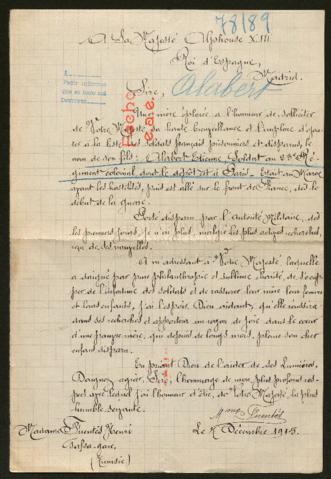 78189
A Sa Majesté Alphonse XIII
Roi d'Espagne,
Madrid.
Alabert
Sire,
Une mère éplorée a l'honneur de solliciter
de Votre Majesté sa haute bienveillance et l'implore d'ajou-
ter à la liste des soldats français prisonniers et disparus, le
nom de son fils: Alabert Etienne, Soldat au 23e
régiment colonial dont le dépôt est à Paris. Etait au Maroc
avant les hostilités, puis est allé sur le front de France, dès le
début de la guerre.
Porté disparu par l'autorité Militaire, dès
les premiers jours, je n'ai plus, malgré les plus actives recherches,
reçu de ses nouvelles.
En m'adressant à Votre Majesté laquelle
a daigné par pure philanthropie et sublime charité de s'occu-
per de l'infortune des soldats et de rassurer leur mère leur femme
et leurs enfants, j'ai l'espoir, Dieu aidant, qu'elle
ses recherches et apportera un rayon de joie dans le cœur
d'une pauvre mère, qui depuis de longs mois, pleure son cher
enfant disparu.
En priant Dieu de l'aider de ses lumières,
Daignez agréer, Sire, l'hommage de mon plus profond res-
pect avec lequel j'ai l'honneur d'être, de Votre Majesté, la plus
humble servante.
Mme Fuentès
Madame Fuentès Henri
Gafsa-gare,
(Tunisie)
Décembre 1915.